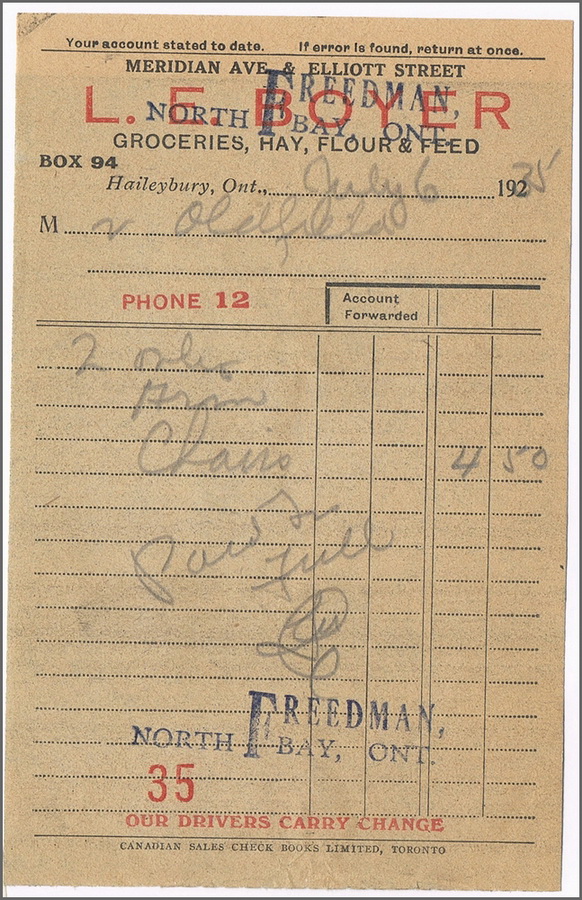 Your account stated to date. If error is found, return at once.
MERIDIAN AVE. & ELLIOTT STREET
L. E. BOYER
FREEDMAN,
NORTH BAY, ONT.
GROCERIES, HAY, FLOUR & FEED
BOX 94
Haileybury, Ont., July 6 1925 35
M r Oldfield
PHONE 12
Account
Forwarded
2
Arm
Chairs 4 50
Paid In
full
FREEDMAN,
NORTH BAY, ONT.
35
OUR DRIVERS CARRY CHANGE
CANADIAN SALES CHECK BOOKS LIMITED, TORONTO